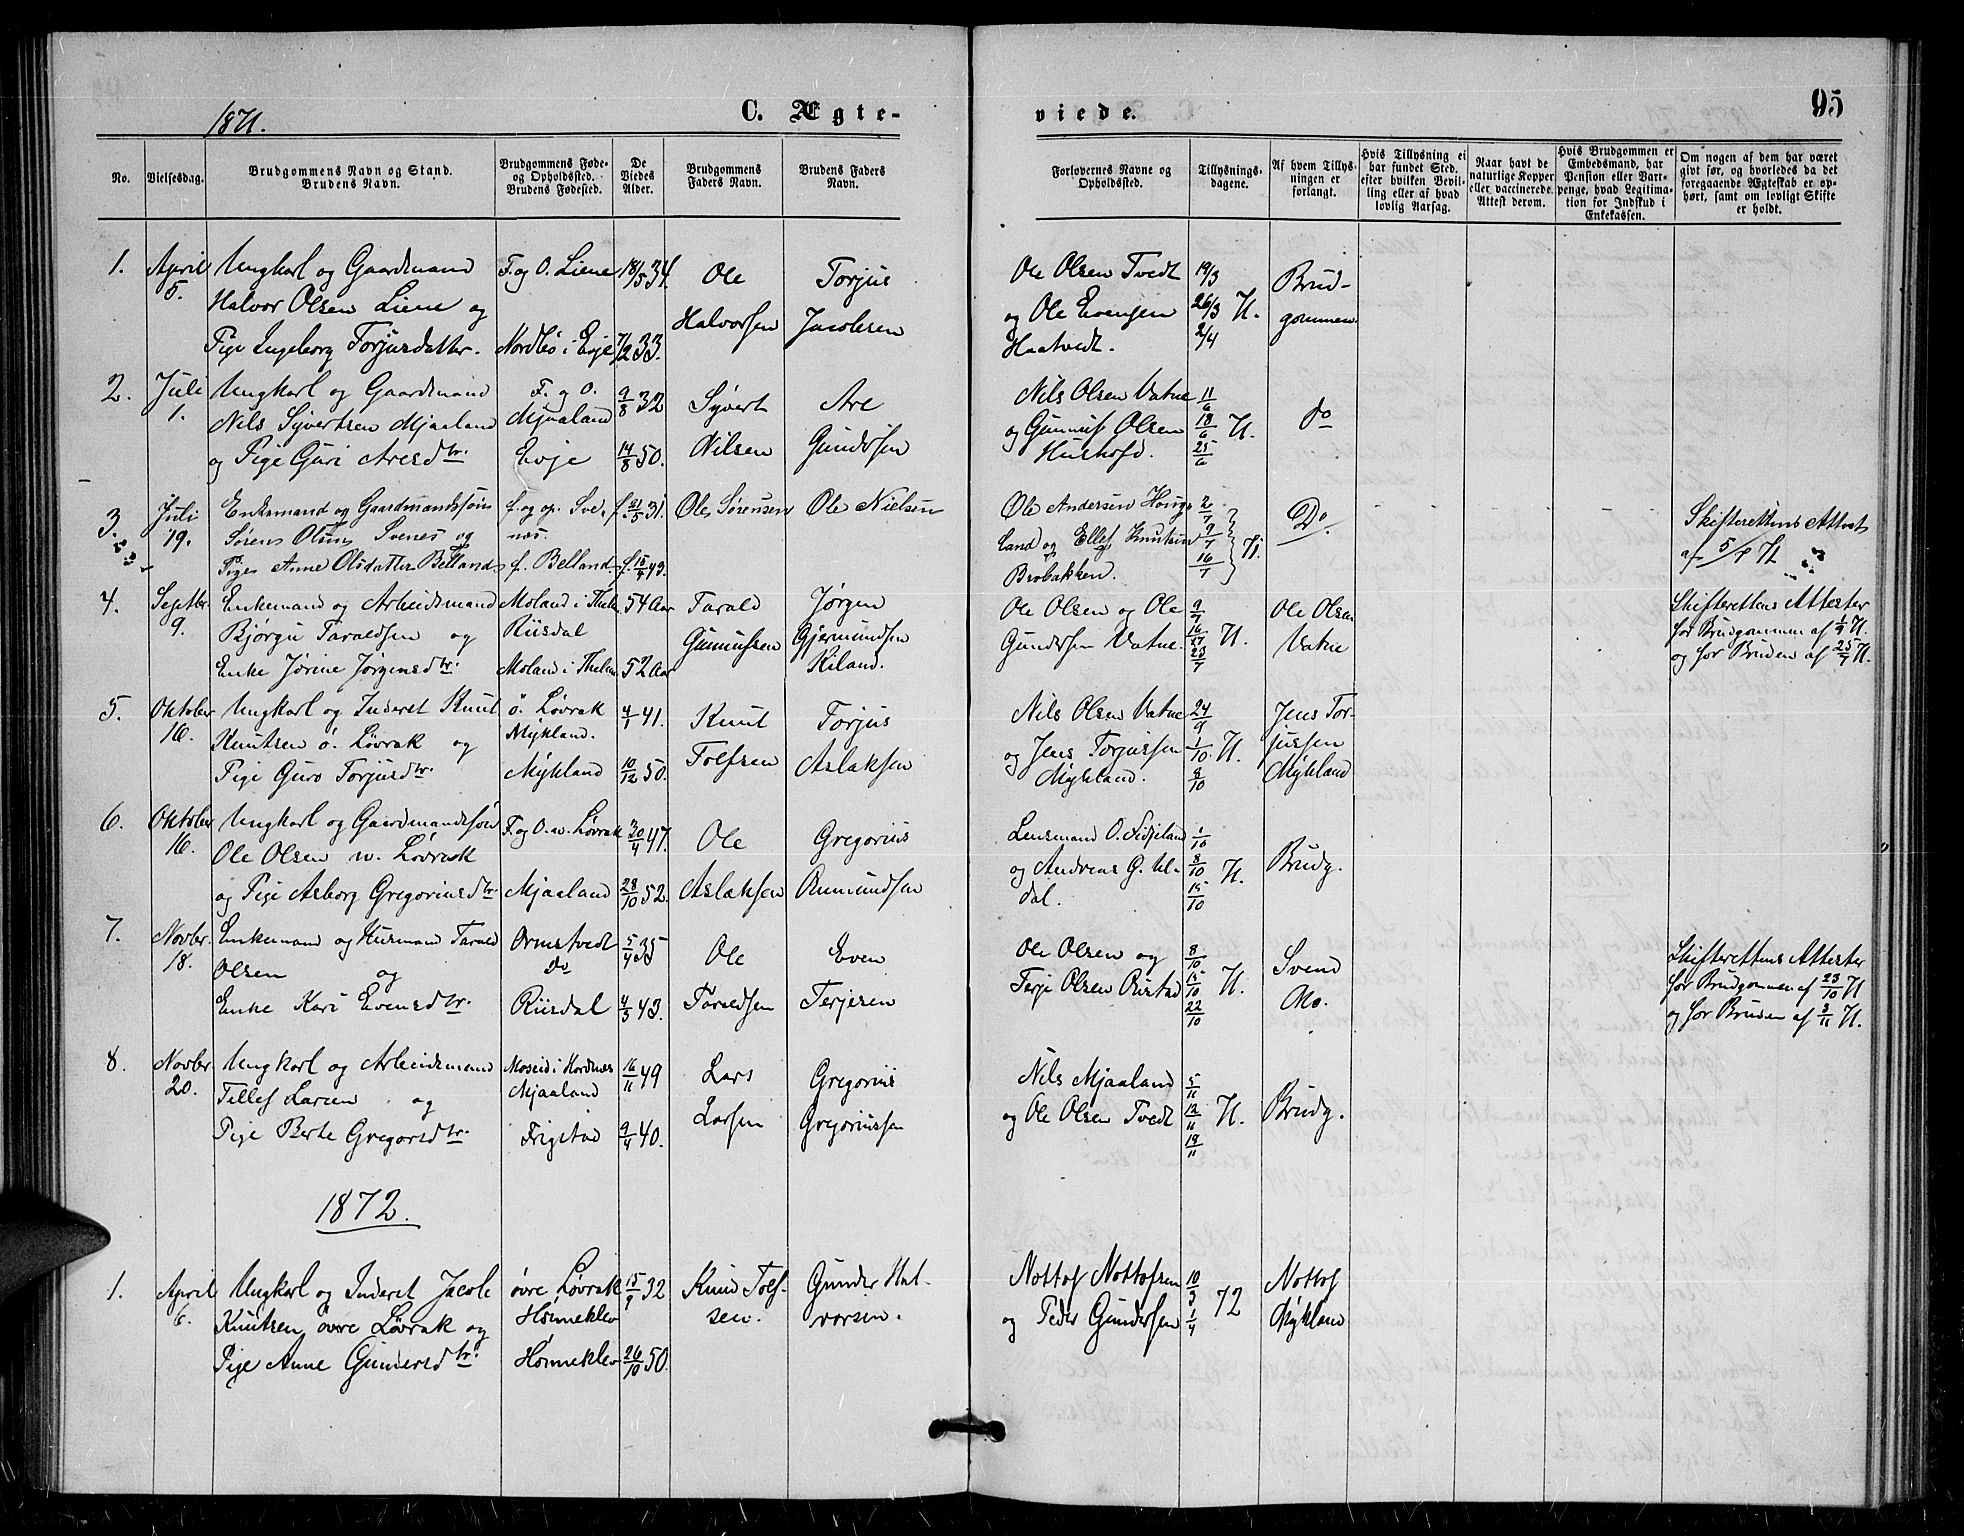 95
1871.
C. Ægte-
viede.
No.
Vielsesdag.
Brudgommens Navn og Stand.
Brudens Navn.
Brudgommens Føde-
og Opholdssted.
Brudens Fødested.
De
Viedes
Alder.
Brudgommens
Faders Navn.
Brudens Faders
Navn.
Forlovernes Navne og
Opholdssted.
Tillysnings-
dagene.
Af hvem Tillys-
ningen er
forlangt.
Hvis Tillysning ei
har fundet Sted,
efter hvilken Bevil-
ling eller af hvad
lovlig Aarsag.
Naar havt de
naturlige Kopper
eller vaccinerede.
Attest derom.
Hvis Brudgommen er
Embedsmand, har
Pension eller Vart-
penge, hvad Legitima-
tion for Indskud i
Enkekassen.
Om nogen af dem har været
givt før, og hvorledes da det
foregaaende Ægteskab er op-
hørt, samt om lovligt Skifte
er holdt.
1.
April
5.
Ungkarl og Gaardmand
Halvor Olsen Liene og
Pige Ingeborg Torjusdatter.
F. og O. Liene
Nordbø i Evje
18/5 34.
7/2 33.
Ole
Halvorsen
Torjus
Jacobsen
Ole Olsen Tvedt
og Ole Evensen
Haatvedt.
19/3
26/3 71.
2/4
Brud-
gommen.
2.
Juli
1.
Ungkarl og Gaardmand
Nils Syvertsen Mjaaland
og Pige Guri Aresdtr.
F. og O.
Mjaaland
Evje
9/8 32
14/8 50.
Syvert
Nilsen
Are
Gundersen
Nils Olsen Vatne
og Gunnuf Olsen
Hushofd.
11/6
18/6 71.
25/6
do
3.
Juli
19.
Enkemand og Gaardmandssøn
Søren Olsen Svenes og
Pige Anne Olsdatter Belland
f. og op. Sve-
nes.
f. Belland
f. 21/5 31.
f. 15/4 43.
Ole Sørensen
Ole Nielsen
Ole Andersen Houg-
land og Ellef Knutsen
Brobakken.
2/7
9/7 71.
16/7
Do.
Skifterettens Attest
af 5/7 71
4.
Septbr.
9.
Enkemand og Arbeidsmand
Bjørgu Taraldsen og
Enke Jørine Jørgensdtr.
Moland i Thele.
Riisdal
Moland i Thele.
54 Aar
52 Aar
Tarald
Gunnufsen
Jørgen
Gjermundsen
Kiland.
Ole Olsen og Ole
Gundersen Vatne.
9/7
16/7 71.
23/7
Ole Olsen
Vatne
Skifterettens Attester
for Brudgommen af 1/9 71.
og for Bruden af 25/7 71.
5.
Oktober
16.
Ungkarl og Inderst Knut
Knutsen ö. Løvrak og
Pige Guro Torjusdtr.
ö. Løvrak
Mykland.
Mykland
4/1 41.
10/12 50.
Knut
Tolfsen
Torjus
Aslaksen
Nils Olsen Vatne
og Jens Torjussen
Mykland.
24/9
1/10 71.
8/10
Jens Tor-
jussen
Mykland
6.
Oktober
16.
Ungkarl og Gaardmandssøn
Ole Olsen w. Løvrak
og Pige Asborg Gregoriusdtr
F. og O. w. Løvrak
Mjaaland
30/4 47.
28/10 52.
Ole
Aslaksen
Gregorius
Aamundsen
Lensmand O. Fidjeland
og Andreas G. Ul-
dal.
1/10
8/10 71.
15/10
Brudg.
7.
Novbr.
18.
Enkemand og Husmand Tarald
Olsen og
Enke Kari Evensdtr.
Ormstvedt
do
Riisdal
5/4 35
4/3 43.
Ole
Taraldsen
Even
Terjesen
Ole Olsen og
Terje Olsen Rustad
8/10
15/10 71.
22/10
Svend
Mo.
Skifterettens Attester
for Brudgommen af 23/10 71
og for Bruden af 3/11 71.
8.
Novbr
20.
Ungkarl og Arbeidsmand
Tellef Larsen og
Pige Berte Gregorsdtr.
Moseid i Hordnes
Mjaaland
Frigstad
16/11 49
9/4 40.
Lars
Larsen
Gregorius
Gregoriussen
Nils Mjaaland
og Ole Olsen Tvedt
5/11
12/11 71.
19/11
Brudg.
1872.
1.
April
6.
Ungkarl og Inderst Jacob
Knutsen övre Løvrak og
Pige Anne Gundersdtr.
övre Løvrak
Hönneklev
Hönneklev
15/9 32
26/10 50.
Knud Tolf-
sen.
Gunder Hal-
vorsen.
Nottof Nottofsen
og Peder Gundersen
10/3
1/4 72
Nottof
Mykland